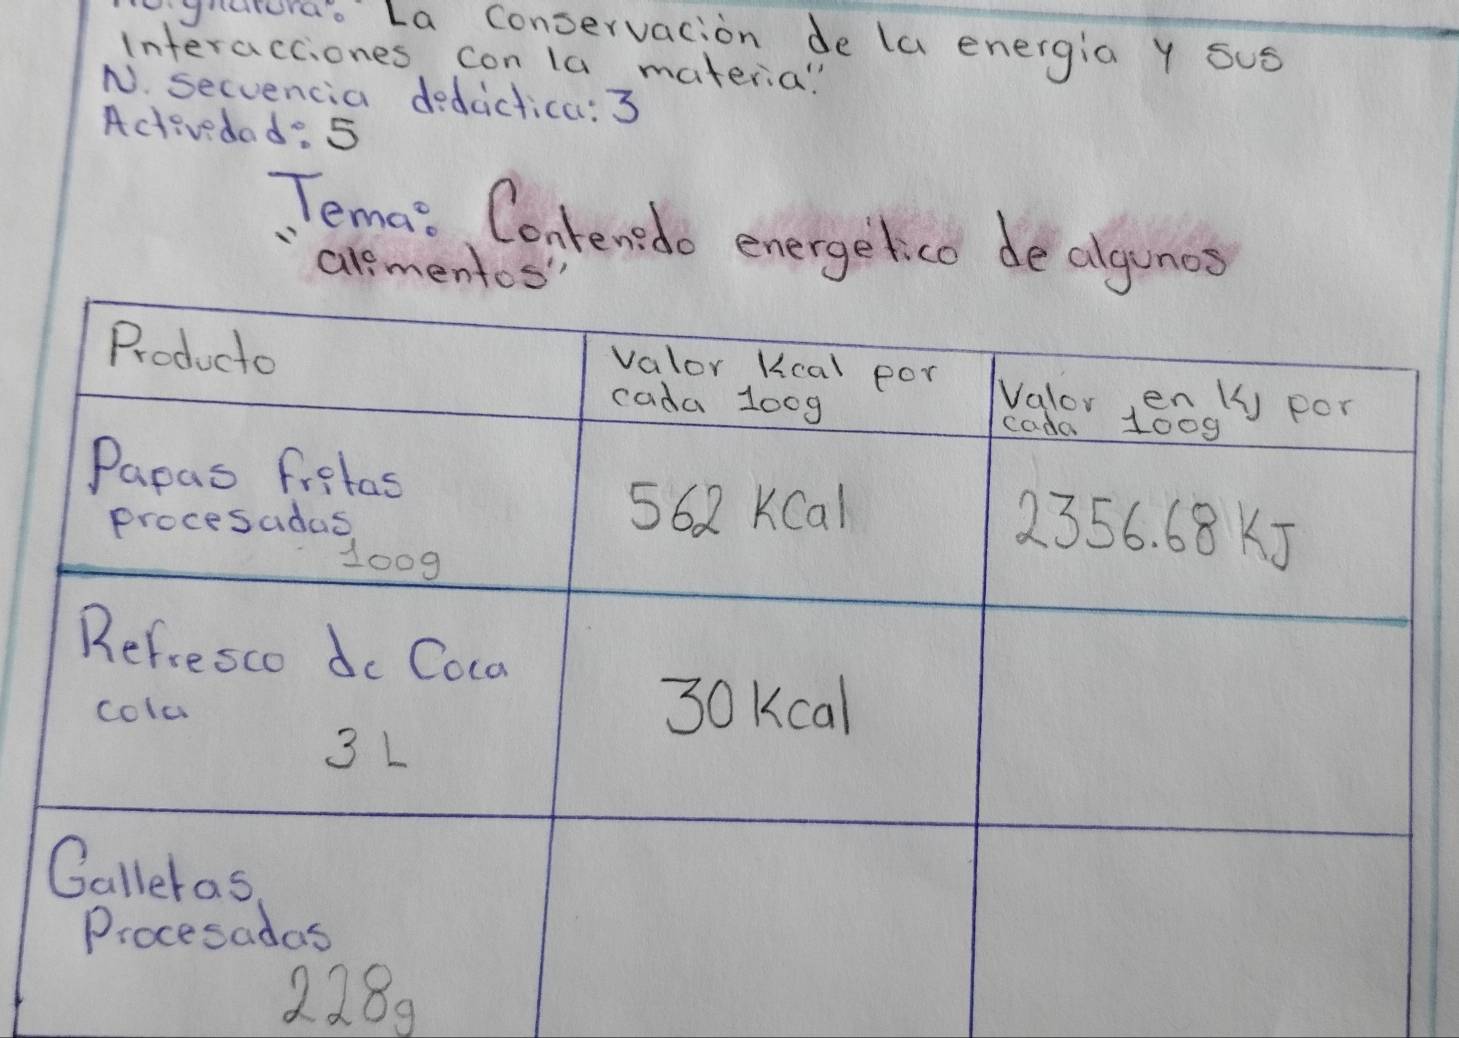 La conservación de la energía y sus
Interacciones con la materia"
N. secuencia didáctica: 3
Actividad: 5
Tema: Contenido energético de algunos
"alimentos"
Producto
Valor Kcal por
cada 100g
Valor en KJ por
cada 100g
Papas fritas
procesadas
100g
562 KCal
2356.68 KJ
Refresco de Coca
cola
3 L
30 Kcal
Galletas
Procesadas
228g